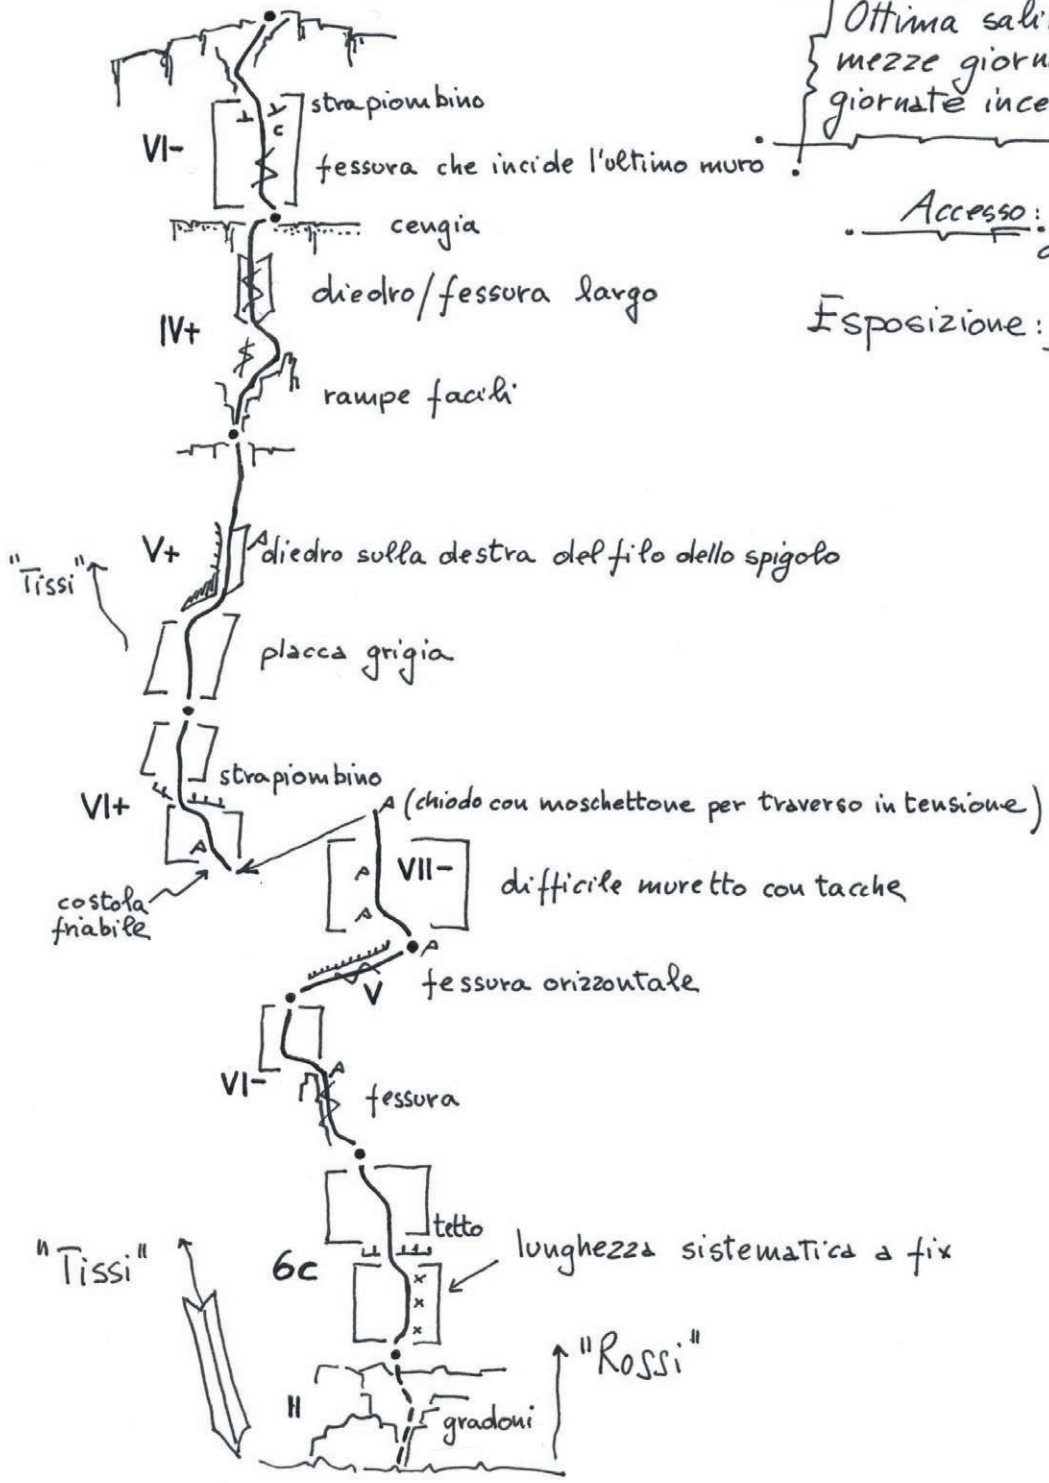 Ottima sali
mezze giorn
giornate ince
Accesso:
Esposizione:
strapiombino
VI-
c
fessura che incide l'ultimo muro
cengia
diedro/fessura largo
IV+
rampe facili
V+
diedro sulla destra del filo dello spigolo
"Tissi"
placca grigia
strapiombino
VI+
(chiodo con moschettone per traverso in tensione)
VII-
difficile muretto con tacche
costola
friabile
V
fessura orizzontale
VI-
fessura
tetto
"Tissi"
6c
lunghezza sistematica a fix
"Rossi"
II
gradoni